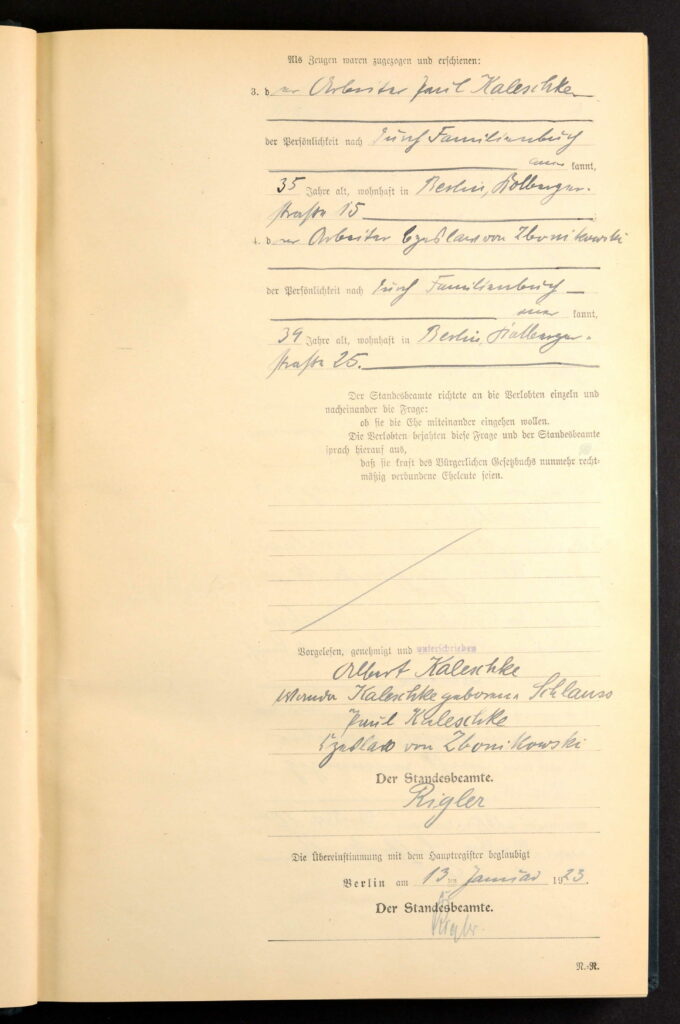 Als Zeugen waren zugezogen und erschienen:
3. d er Arbeiter Paul Kaleschke
der Persönlichkeit nach durch Familienbuch
aner kannt,
35 Jahre alt, wohnhaft in Berlin, Kolberger-
straße 15
4. d er Arbeiter Czeslaw von Zbonikowski
der Persönlichkeit nach durch Familienbuch
aner kannt,
39 Jahre alt, wohnhaft in Berlin, Kolberger-
straße 25.
Der Standesbeamte richtete an die Verlobten einzeln und
nacheinander die Frage:
ob sie die Ehe miteinander eingehen wollen.
Die Verlobten bejahten diese Frage und der Standesbeamte
sprach hierauf aus,
daß sie kraft des Bürgerlichen Gesetzbuchs nunmehr recht-
mäßig verbundene Eheleute seien.
Vorgelesen, genehmigt und unterschrieben
Albert Kaleschke
Wanda Kaleschke geborene Schlauss
Paul Kaleschke
Czeslaw von Zbonikowski
Der Standesbeamte.
Rigler
Die Übereinstimmung mit dem Hauptregister beglaubigt
Berlin am 13 ten Januar 1923.
Der Standesbeamte.
Rigler.
N.-R.